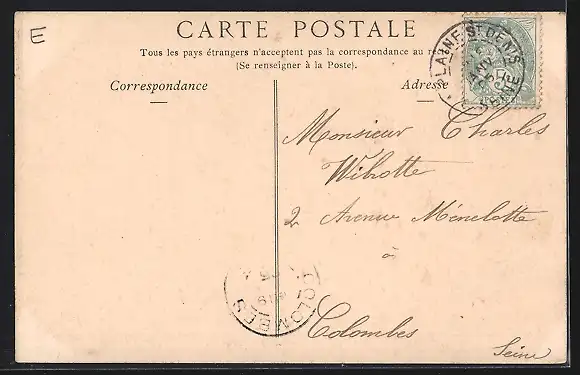 E
CARTE POSTALE
Tous les pays étrangers n'acceptent pas la correspondance au
(Se renseigner à la Poste).
Correspondance
Adresse
LA PLAINE ST DENIS
SEINE
Monsieur Charles
Wibrotte
2 Avenue Ménelotte
à
COLOMBES
Colombes
Seine